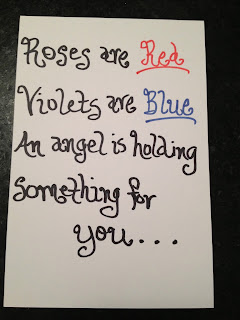 Roses are Red
Violets are Blue
An angel is holding
something for
you...